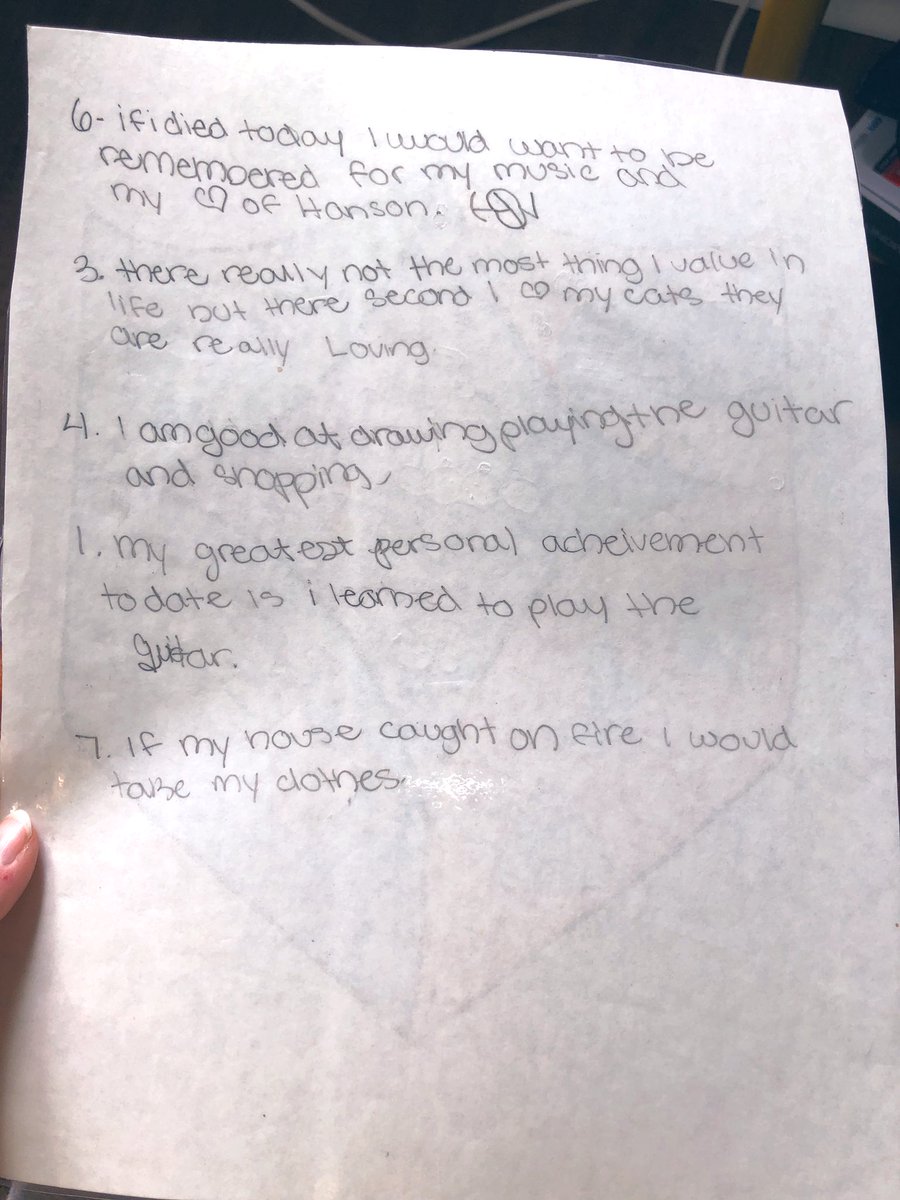 6- if i died today I would want to be
remembered for my music and
my ♡ of Hanson.
3. there really not the most thing I value in
life but there second I ♡ my cats they
are really Loving.
4. I am good at drawing playing the guitar
and shopping
1. my greatest personal acheivement
to date is i learned to play the
guitar.
7. If my house caught on fire I would
take my clothes.